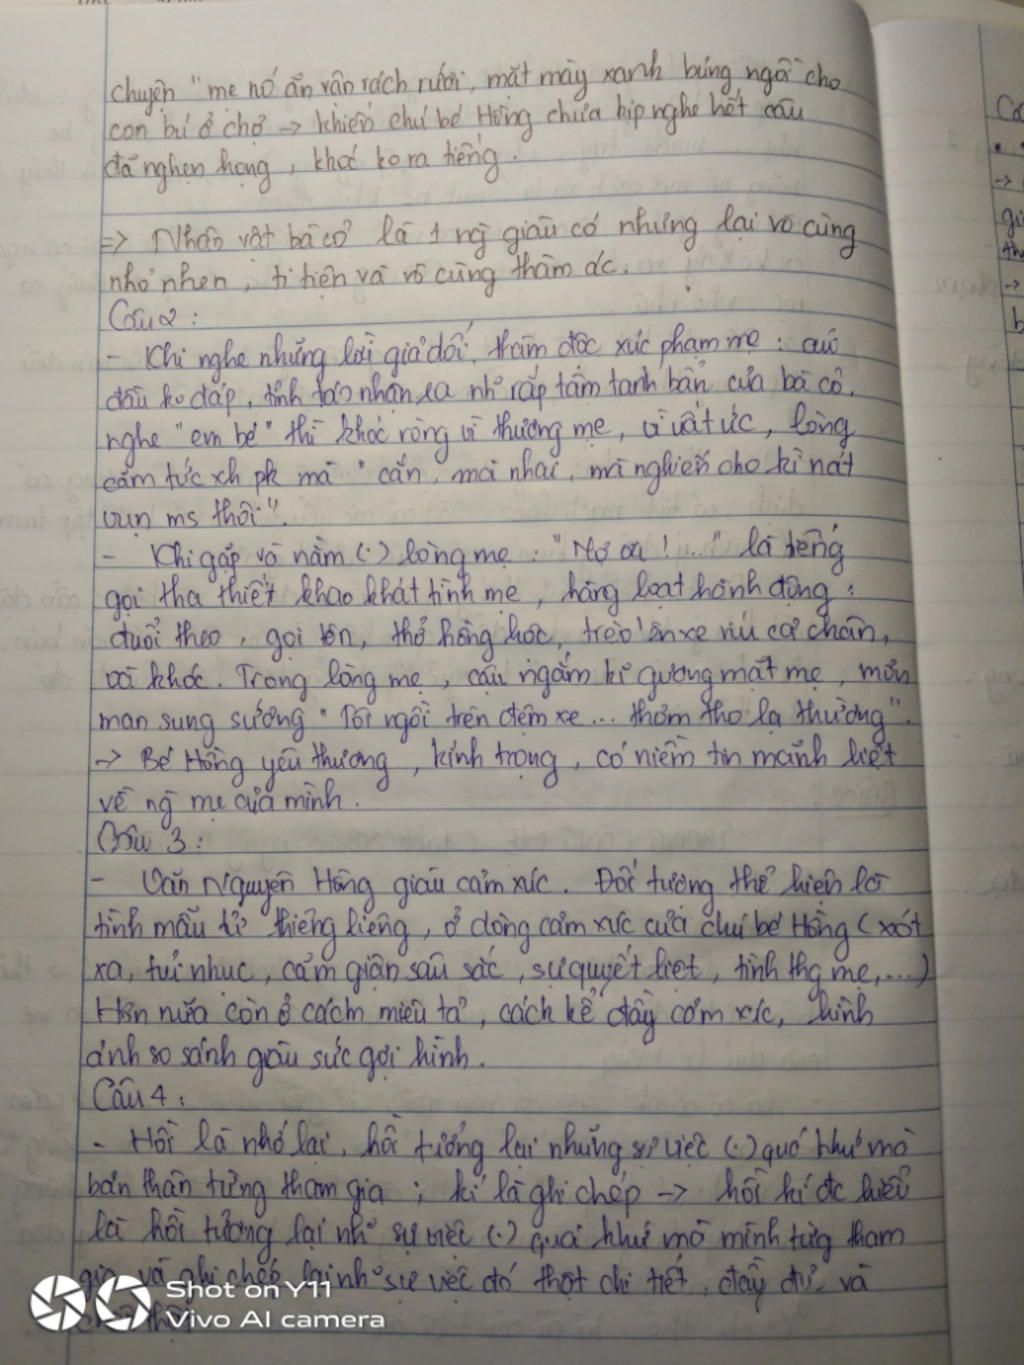 chuyện " mẹ nó ăn vận rách rưới, mặt mày xanh bủng ngồi cho
con bú ở chợ → khiến chú bé Hồng chưa kịp nghe hết câu
đã nghẹn họng, khóc ko ra tiếng.
=> Nhân vật bà cô là 1 ng giàu có nhưng lại vô cùng
nhỏ nhen, ti tiện và vô cùng thâm ác.
Câu 2:
- Khi nghe những lời giả dối, thâm độc xúc phạm mẹ: cúi
đầu ko đáp, tỉnh táo nhận ra nh~ rắp tâm tanh bẩn của bà cô,
nghe "em bé" thì khóc ròng vì thương mẹ, vì uất ức, lòng
căm tức xh pk mà " cắn, mà nhai, mà nghiến cho kì nát
vụn ms thôi".
- Khi gặp và nằm (.) lòng mẹ: "Mợ ơi! ..." là tiếng
gọi tha thiết khao khát tình mẹ, hàng loạt hành động:
đuổi theo, gọi tên, thở hồng hộc, trèo lên xe ríu cả chân,
oà khóc. Trong lòng mẹ, cậu ngắm kĩ gương mặt mẹ, mơn
man sung sướng " Tôi ngồi trên đệm xe ... thơm tho lạ thường".
→ Bé Hồng yêu thương, kính trọng, có niềm tin mãnh liệt
về ng mẹ của mình.
Câu 3:
- Văn Nguyên Hồng giàu cảm xúc. Đối tượng thể hiện là
tình mẫu tử thiêng liêng, ở dòng cảm xúc của chú bé Hồng (xót
xa, tủi nhục, căm giận sâu sắc, sự quyết liệt, tình thg mẹ,...)
Hơn nữa còn ở cách miêu tả, cách kể đầy cảm xúc, hình
ảnh so sánh giàu sức gợi hình.
Câu 4:
- Hồi là nhớ lại, hồi tưởng lại những sự việc (.) quá khứ mà
bản thân từng tham gia; kí là ghi chép → hồi kí đc hiểu
là hồi tưởng lại nh~ sự việc (.) quá khứ mà mình từng tham
gia và ghi chép lại nh~ sự việc đó thật chi tiết, đầy đủ và
Shot on Y11
Vivo AI camera